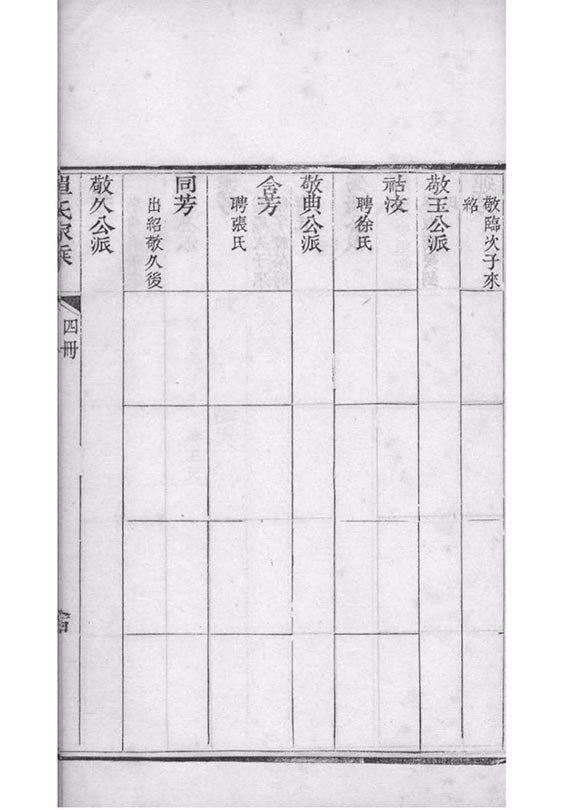 敬臨次子來
紹
敬玉公派
祜汶
聘徐氏
敬典公派
含芳
聘張氏
同芳
出紹敬久後
敬久公派
氏家乘
四冊